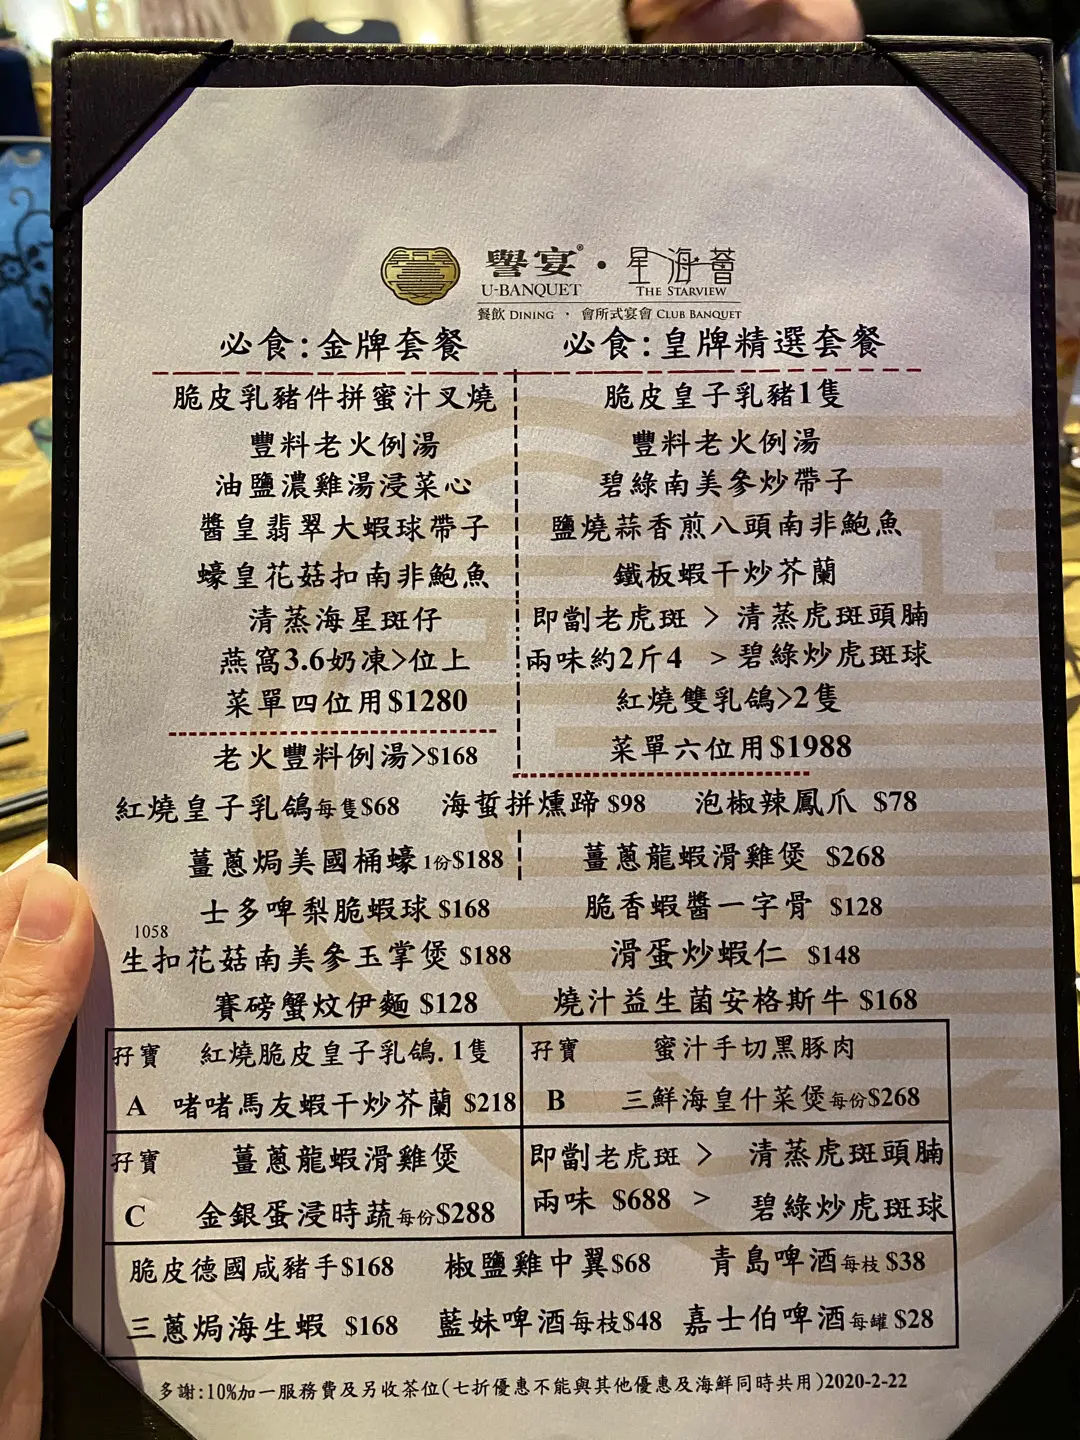 譽宴® · 星海薈
U-BANQUET THE STARVIEW
餐飲 DINING · 會所式宴會 CLUB BANQUET
必食:金牌套餐
脆皮乳豬件拼蜜汁叉燒
豐料老火例湯
油鹽濃雞湯浸菜心
醬皇翡翠大蝦球帶子
蠔皇花菇扣南非鮑魚
清蒸海星斑仔
燕窩3.6奶凍>位上
菜單四位用$1280
老火豐料例湯>$168
必食:皇牌精選套餐
脆皮皇子乳豬1隻
豐料老火例湯
碧綠南美參炒帶子
鹽燒蒜香煎八頭南非鮑魚
鐵板蝦干炒芥蘭
即劏老虎斑 > 清蒸虎斑頭腩
兩味約2斤4 > 碧綠炒虎斑球
紅燒雙乳鴿>2隻
菜單六位用$1988
紅燒皇子乳鴿每隻$68 海蜇拼燻蹄 $98 泡椒辣鳳爪 $78
薑蔥焗美國桶蠔1份$188 薑蔥龍蝦滑雞煲 $268
士多啤梨脆蝦球 $168 脆香蝦醬一字骨 $128
1058
生扣花菇南美參玉掌煲 $188 滑蛋炒蝦仁 $148
賽磅蟹炆伊麵 $128 燒汁益生菌安格斯牛 $168
孖寶 紅燒脆皮皇子乳鴿.1隻
A 啫啫馬友蝦干炒芥蘭 $218
孖寶 蜜汁手切黑豚肉
B 三鮮海皇什菜煲每份$268
孖寶 薑蔥龍蝦滑雞煲
C 金銀蛋浸時蔬每份$288
即劏老虎斑 > 清蒸虎斑頭腩
兩味 $688 > 碧綠炒虎斑球
脆皮德國咸豬手$168 椒鹽雞中翼$68 青島啤酒每枝 $38
三蔥焗海生蝦 $168 藍妹啤酒每枝$48 嘉士伯啤酒每罐 $28
多謝:10%加一服務費及另收茶位(七折優惠不能與其他優惠及海鮮同時共用)2020-2-22